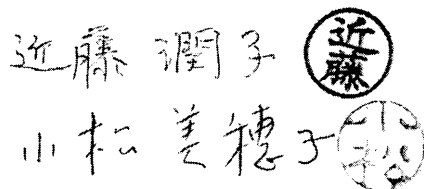 近藤 潤子 近藤
小松 美穂子 小松